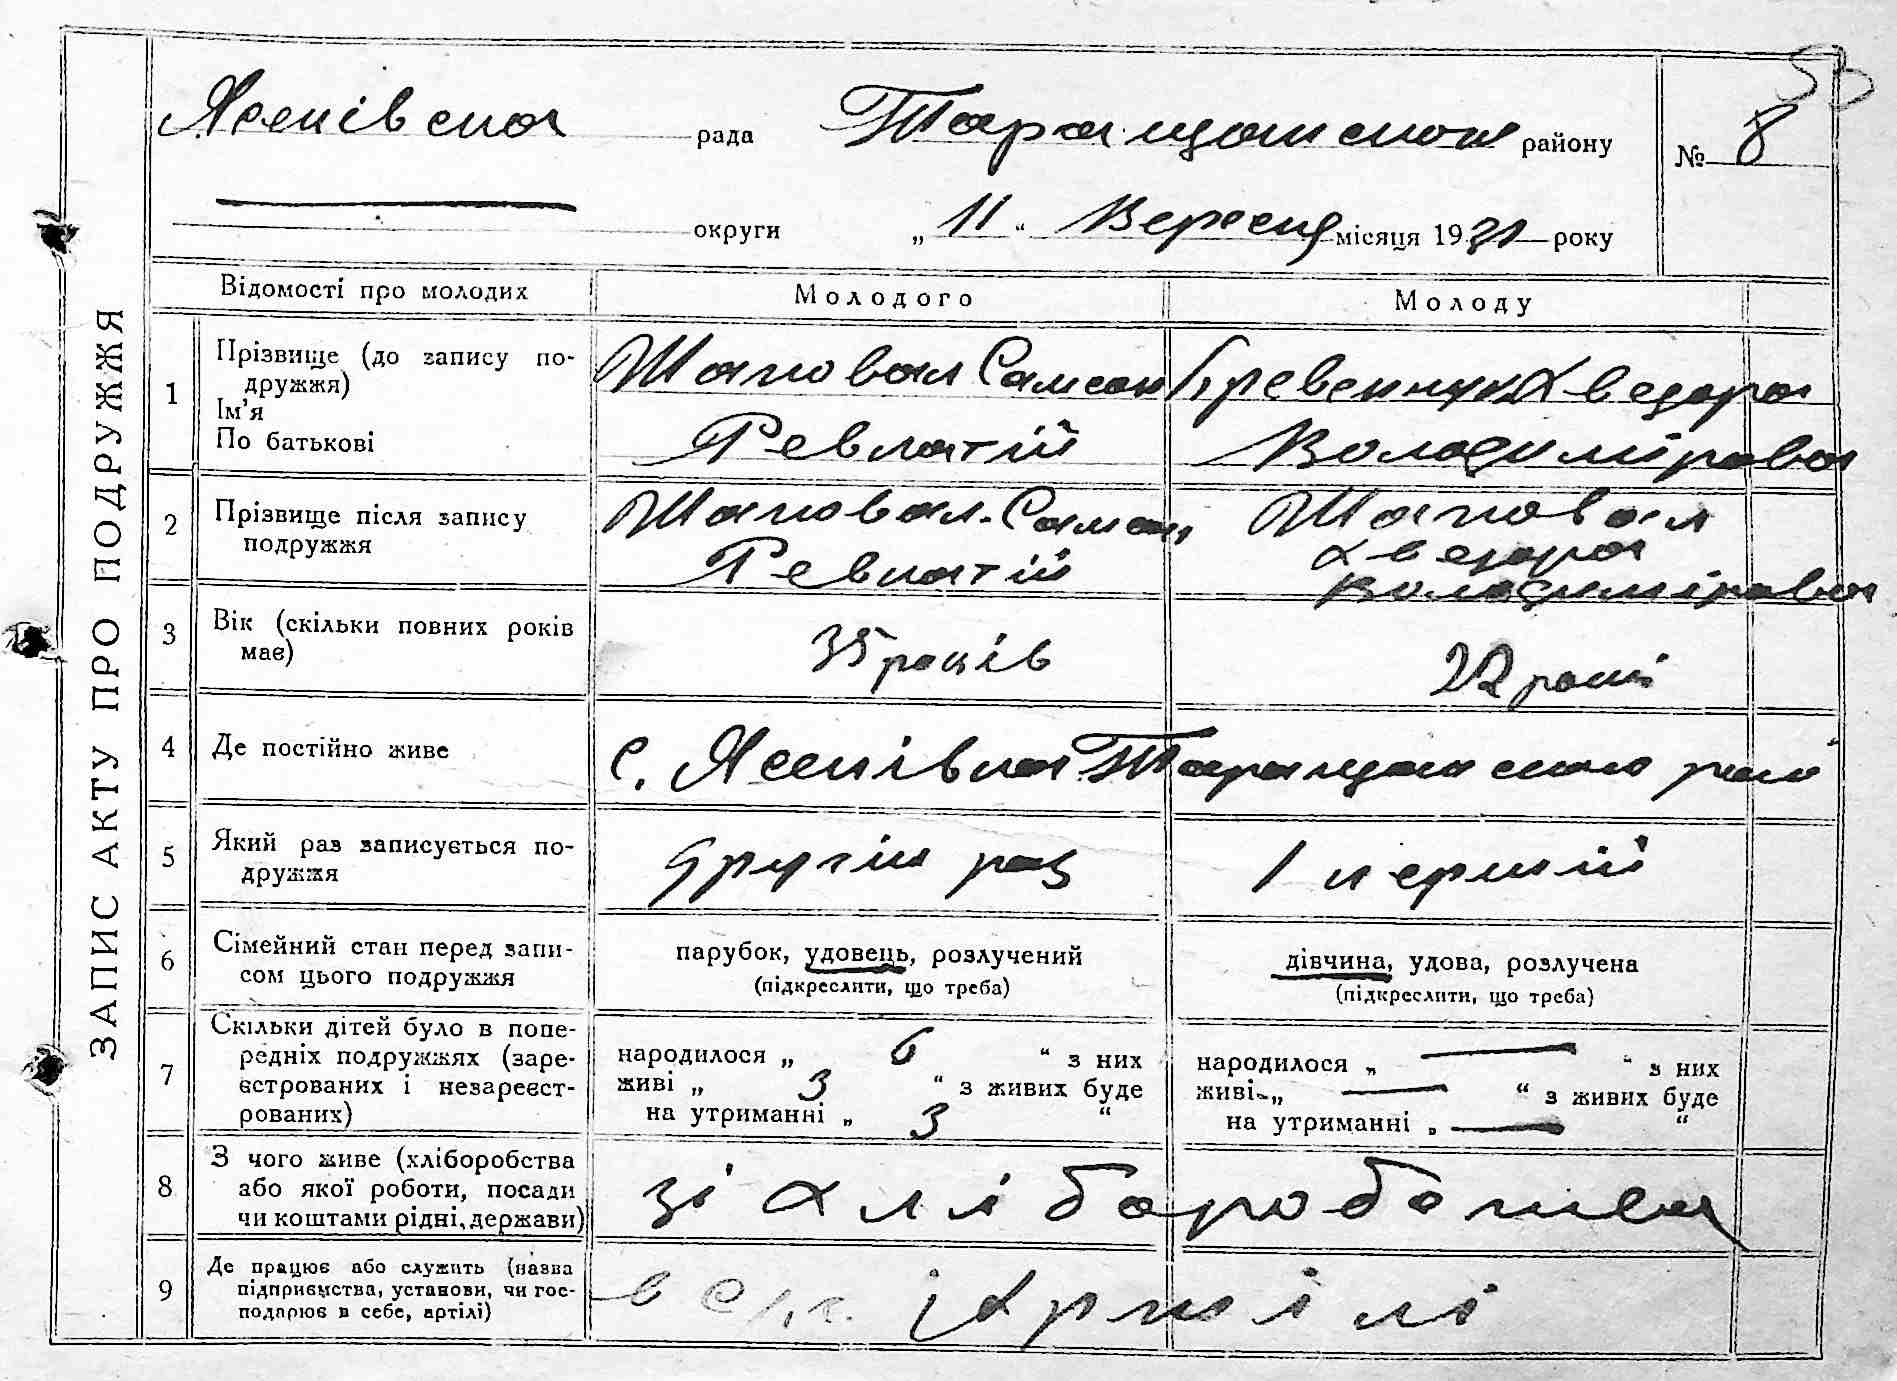 53
Ясенівська рада Таращанського району № 8
округи „ 11 “ Вересня місяця 1931 року
ЗАПИС АКТУ ПРО ПОДРУЖЖЯ
Відомості про молодих Молодого Молоду
1 Прізвище (до запису подружжя) Шаповал Самсон Хведора
Ім'я
По батькові Володимірова
2 Прізвище після запису Шаповал Самсон Шаповал
подружжя Хведора
Володимірова
3 Вік (скільки повних років має) 35 років 22 роки
4 Де постійно живе с. Ясенівка Таращанського рай
5 Який раз записується по- другий раз 1 перший
дружжя
6 Сімейний стан перед запи- парубок, удовець, розлучений дівчина, удова, розлучена
сом цього подружжя (підкреслити, що треба) (підкреслити, що треба)
7 Скільки дітей було в попе-
редніх подружжях (заре-
єстрованих і незареєст-
рованих)
народилося „ 6 “ з них
живі „ 3 “ з живих буде
на утриманні „ 3 “
народилося „ — “ з них
живі „ — “ з живих буде
на утриманні „ — “
8 З чого живе (хліборобства
або якої роботи, посади
чи коштами рідні, держави)
зі хліборобства
9 Де працює або служить (назва
підприємства, установи, чи гос-
подарює в себе, артілі)
в